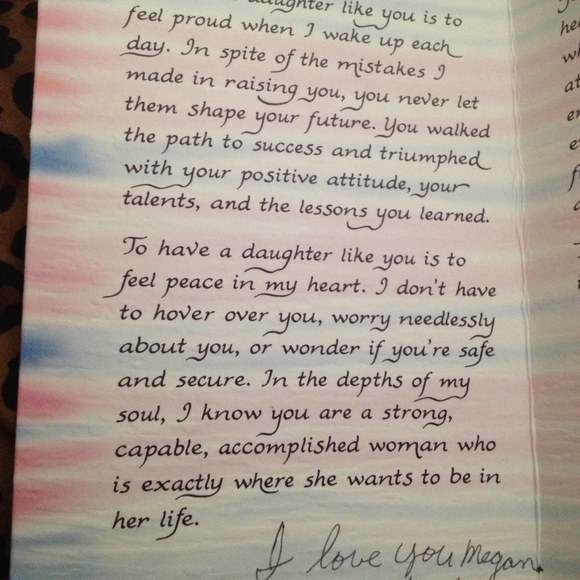 daughter like you is to
feel proud when I wake up each
day. In spite of the mistakes I
made in raising you, you never let
them shape your future. You walked
the path to success and triumphed
with your positive attitude, your
talents, and the lessons you learned.
To have a daughter like you is to
feel peace in my heart. I don't have
to hover over you, worry needlessly
about you, or wonder if you're safe
and secure. In the depths of my
soul, I know you are a strong,
capable, accomplished woman who
is exactly where she wants to be in
her life.
I love you Megan.